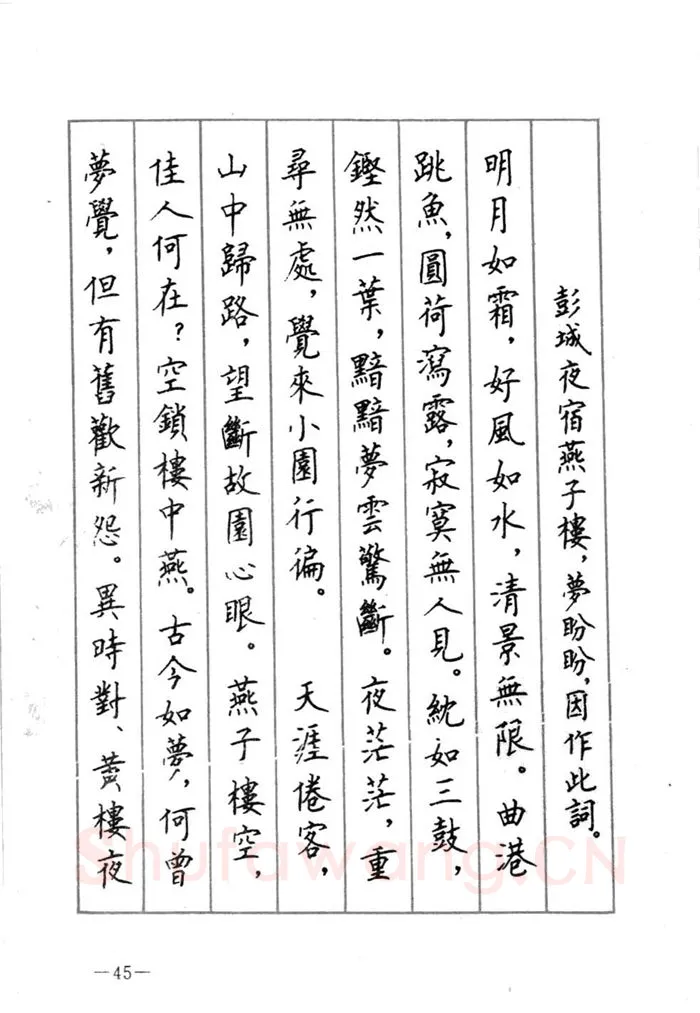 彭城夜宿燕子樓，夢盼盼，因作此詞。
明月如霜，好風如水，清景無限。曲港
跳魚，圓荷瀉露，寂寞無人見。紞如三鼓，
鏗然一葉，黯黯夢雲驚斷。夜茫茫，重
尋無處，覺來小園行徧。 天涯倦客，
山中歸路，望斷故園心眼。燕子樓空，
佳人何在？空鎖樓中燕。古今如夢，何曾
夢覺，但有舊歡新怨。異時對、黃樓夜
Shufawang.CN
—45—